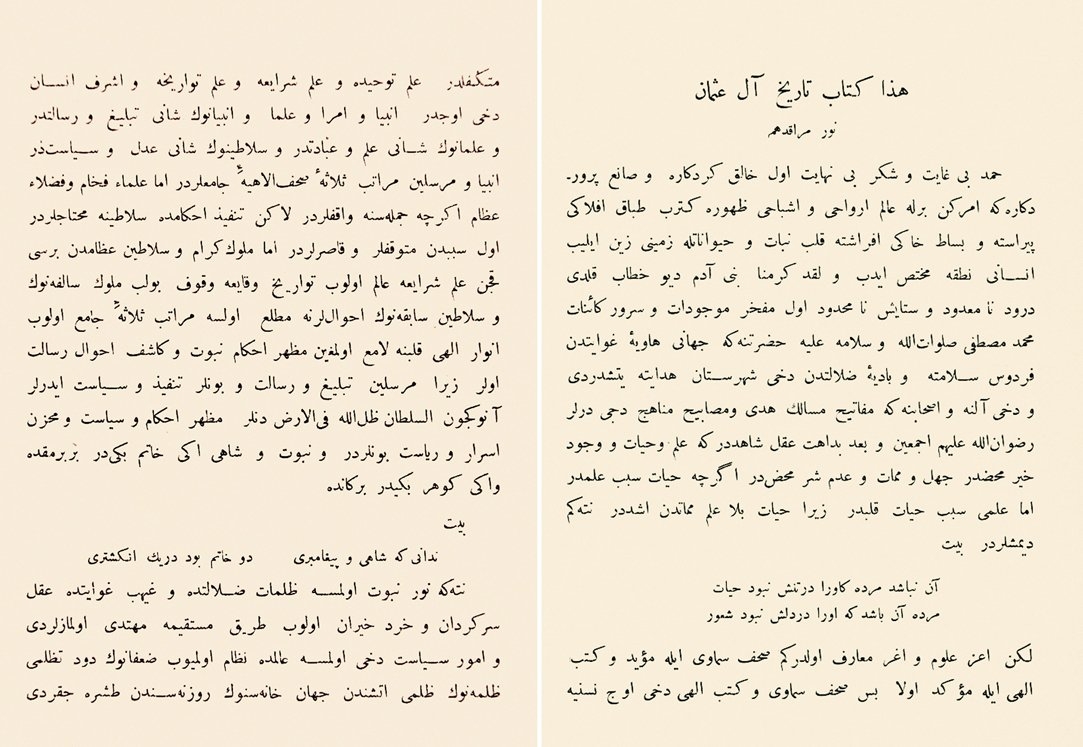 هذا كتاب تاريخ آل عثمان
نور مراقدهم
حمد بى غايت و شكر بى نهايت اول خالق كردكاره و صانع پرور۔
دكاره كه امركن برله عالم ارواحى و اشباحى ظهوره كترب طباق افلاكى
پيراسته و بساط خاكى افراشته قلب نبات و حيواناتله زمينى زين ايليب
انسانى نطقه مختص ايدب و لقد كرمنا بنى آدم ديو خطاب قلدى
درود نا معدود و ستايش نا محدود اول مفخر موجودات و سرور كائنات
محمد مصطفى صلوات‌الله و سلامه عليه حضرتنه‌كه جهانى هاويۀ غوايتدن
فردوس سلامته و باديۀ ضلالتدن دخى شهرستان هدايته يتشدردى
و دخى آلنه و اصحابنه كه مفاتيح مسالك هدى ومصابيح مناهج دجى درلر
رضوان‌الله عليهم اجمعين و بعد بداهت عقل شاهددر كه علم وحيات و وجود
خير محضدر جهل و ممات و عدم شر محض‌در اگرچه حيات سبب علمدر
اما علمى سبب حيات قلبدر زيرا حيات بلا علم مماتدن اشددر نته‌كم
ديمشلردر بيت
آن نباشد مرده كاورا درتنش نبود حيات
مرده آن باشد كه اورا دردلش نبود شعور
لكن اعز علوم و اغر معارف اولدركم صحف سماوى ايله مؤيد و كتب
الهى ايله مؤكد اولا بس صحف سماوى و كتب الهى دخى اوج نسنيه
متكفلدر علم توحيده و علم شرايعه و علم تواريخه و اشرف انسان
دخى اوجدر انبيا و امرا و علما و انبيانوك شانى تبليغ و رسالتدر
و علمانوك شانى علم و عبادتدر و سلاطينوك شانى عدل و سياست‌در
انبيا و مرسلين مراتب ثلاثۀ صحف‌الاهيه جامعلردر اما علماء فخام وفضلاء
عظام اكرچه جمله‌سنه واقفلردر لاكن تنفيذ احكامده سلاطينه محتاجلردر
اول سببدن متوقفلر و قاصرلردر اما ملوك كرام و سلاطين عظامدن برسى
قچن علم شرايعه عالم اولوب تواريخ وقايعه وقوف بولب ملوك سالفه‌نوك
و سلاطين سابقه‌نوك احوال‌لرنه مطلع اولسه مراتب ثلاثه جامع اولوب
انوار الهى قلبنه لامع اولمغين مظهر احكام نبوت و كاشف احوال رسالت
اولر زيرا مرسلين تبليغ و رسالت و بونلر تنفيذ و سياست ايدرلر
آنوكچون السلطان ظل‌الله فى‌الارض دنلر مظهر احكام و سياست و مخزن
اسرار و رياست بونلردر و نبوت و شاهى اكى خاتم بكى‌در بربرمقده
واكى كوهر بكيدر بركانده
بيت
ندانى كه شاهى و پيغامبرى دو خاتم بود دريك انكشترى
نته‌كه نور نبوت اولمسه ظلمات ضلالتده و غيهب غوايتده عقل
سركردان و خرد حيران اولوب طريق مستقيمه مهتدى اولمازلردى
و امور سياست دخى اولمسه عالمده نظام اولميوب ضعفانوك دود تظلمى
ظلمه‌نوك ظلمى اتشندن جهان خانه‌سنوك روزنه‌سندن طشره چقردى